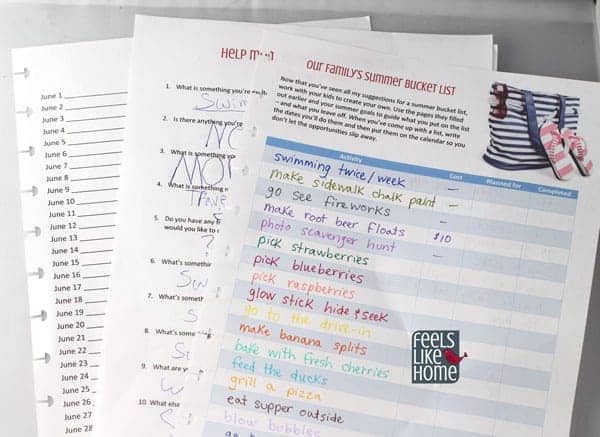 June 1
June 2
June 3
June 4
June 5
June 6
June 7
June 8
June 9
June 10
June 11
June 12
June 13
June 14
June 15
June 16
June 17
June 18
June 19
June 20
June 21
June 22
June 23
June 24
June 25
June 26
June 27
June 28
HELP M
1. What is something you're
Swim
2. Is there anything you're
NO
3. What is something you
MOR
4. What is something
Trave
5. Do you have any
would you like to
?
6. What's somethin
Sw
7. What's someth
S
8. What's some
9. What are y
W
10. What else
Our Family's Summer Bucket List
Now that you've seen all my suggestions for a summer bucket list,
work with your kids to create your own. Use the pages they filled
out earlier and your summer goals to guide what you put on the list
– and what you leave off. When you've come up with a list, write
the dates you'll do them and then put them on the calendar so you
don't let the opportunities slip away.
Activity Cost Planned for Completed
swimming twice/week –
make sidewalk chalk paint –
go see fireworks –
make root beer floats $10
photo scavenger hunt –
pick strawberries
pick blueberries
pick raspberries
glow stick hide & seek
go to the drive-in
make banana splits
bake with fresh cherries
feed the ducks
grill a pizza
eat supper outside
blow bubbles
FEELS
LIKE
HOME